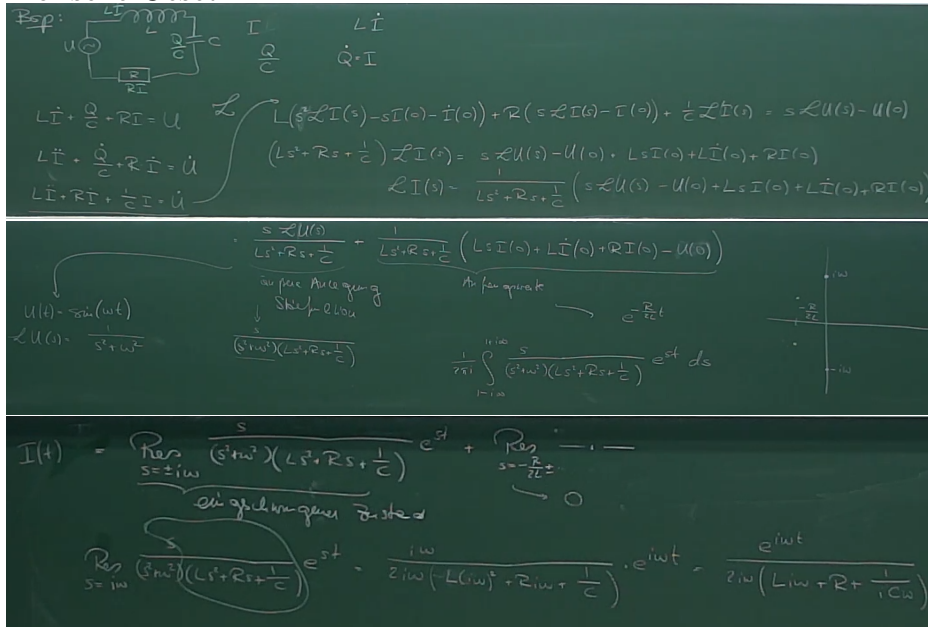 Bsp:
LI
L
U
Q/C
C
R
RI
I
LİI
Q/C
Q̇ = I
Lİ + Q/C + RI = U
LÏ + Q̇/C + Rİ = U̇
LÏ + Rİ + 1/C I = U̇
ℒ
L(s²ℒI(s) - sI(0) - İ(0)) + R(sℒI(s) - I(0)) + 1/C ℒI(s) = sℒU(s) - U(0)
(Ls² + Rs + 1/C) ℒI(s) = sℒU(s) - U(0) + LsI(0) + Lİ(0) + RI(0)
ℒI(s) = 1/(Ls² + Rs + 1/C) (sℒU(s) - U(0) + LsI(0) + Lİ(0) + RI(0))
= sℒU(s)/(Ls² + Rs + 1/C) + 1/(Ls² + Rs + 1/C) (LsI(0) + Lİ(0) + RI(0) - U(0))
äußere Anregung
Anfangswerte
U(t) = sin(ωt)
ℒU(s) = 1/(s² + ω²)
s/((s² + ω²)(Ls² + Rs + 1/C))
e^(-R/2L t)
1/2πi ∫_{1-i∞}^{1+i∞} s/((s² + ω²)(Ls² + Rs + 1/C)) e^{st} ds
iω
-R/2L
-iω
I(t) = Res_{s=±iω} s/((s² + ω²)(Ls² + Rs + 1/C)) e^{st} + Res_{s=-R/2L ± ..} — . —
→ 0
eingeschwungener Zustand
Res_{s=iω} s/((s² + ω²)(Ls² + Rs + 1/C)) e^{st} = iω/(2iω(-L(iω)² + Riω + 1/C)) · e^{iωt} = e^{iωt}/(2iω(Liω + R + 1/(iCω)))